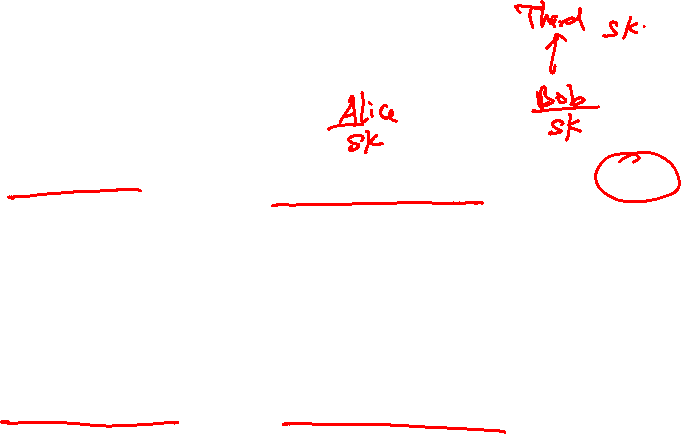 Third sk.
Alice
sk
Bob
sk